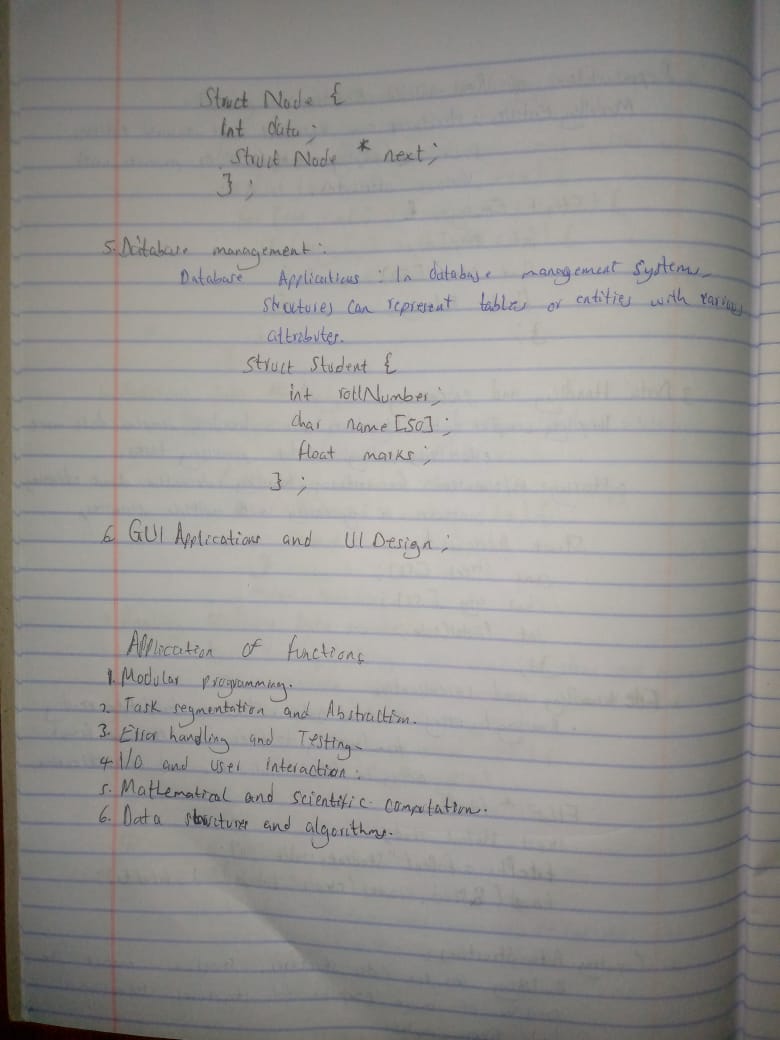 Struct Node {
Int data;
Struct Node * next;
};
5. Database management:
Database Applications: In database management systems
structures can represent tables or entities with various
attributes.
Struct Student {
int rollNumber;
char name [50];
float marks;
};
6 GUI Applications and UI Design;
Application of functions
1. Modular programming.
2. Task segmentation and Abstraction.
3. Error handling and Testing.
4 I/O and user interaction.
5. Mathematical and scientific computation.
6. Data structures and algorithms.